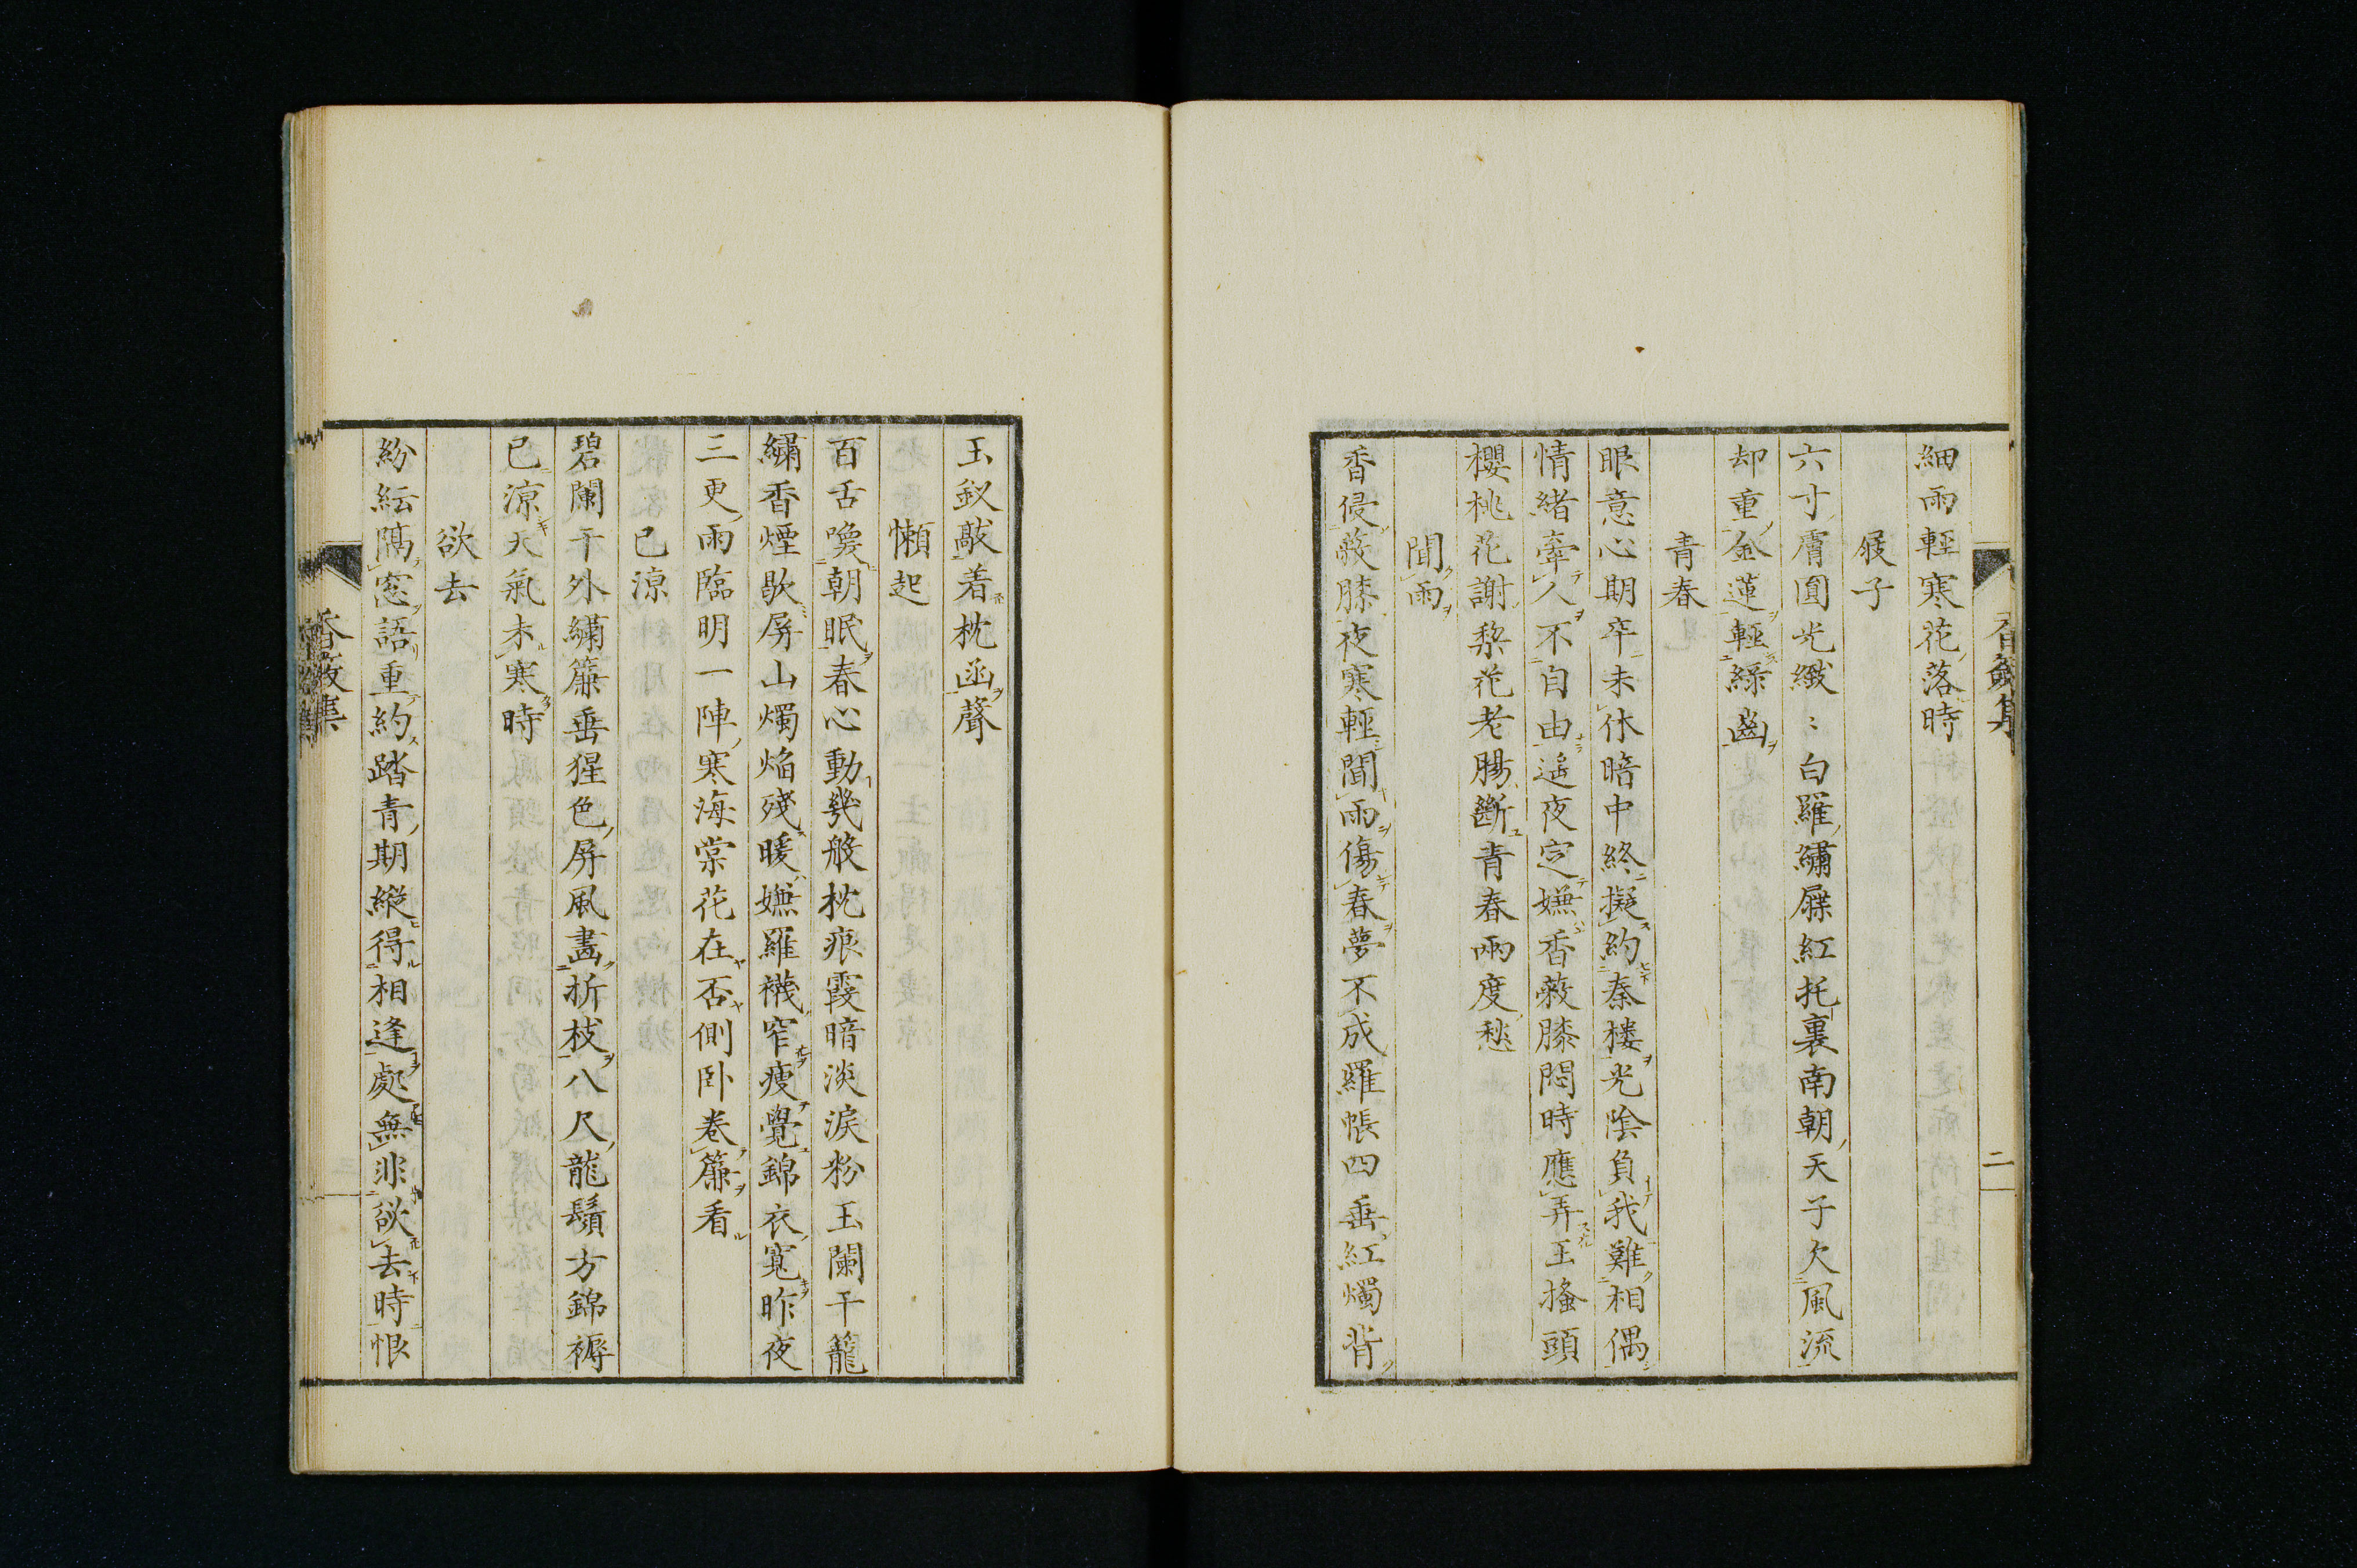 香奩集
二
細雨輕寒花落時
屐子
六寸膚圓光緻〻白羅繡屧紅托裏南朝天子欠風流
却重金蓮輕綠齒
青春
眼意心期卒未休暗中終擬約秦樓光陰負我難相偶
情緒牽人不自由遥夜定嫌香蔽膝悶時應弄玉搔頭
櫻桃花謝梨花老腸斷青春兩度愁
聞雨
香侵蔽膝夜寒輕聞雨傷春夢不成羅帳四垂紅燭背
玉釵敲着枕函聲
懶起
百舌喚朝眠春心動幾般枕痕霞暗淡淚粉玉闌干籠
繡香煙歇屏山燭焔殘暖嫌羅襪窄瘦覺錦衣寬昨夜
三更雨臨明一陣寒海棠花在否側卧卷簾看
已凉
碧闌干外繡簾垂猩色屏風畫折枝八尺龍鬚方錦褥
已凉天氣未寒時
欲去
紛紜隔窓語重約踏青期縱得相逢處無非欲去時恨
香奩集